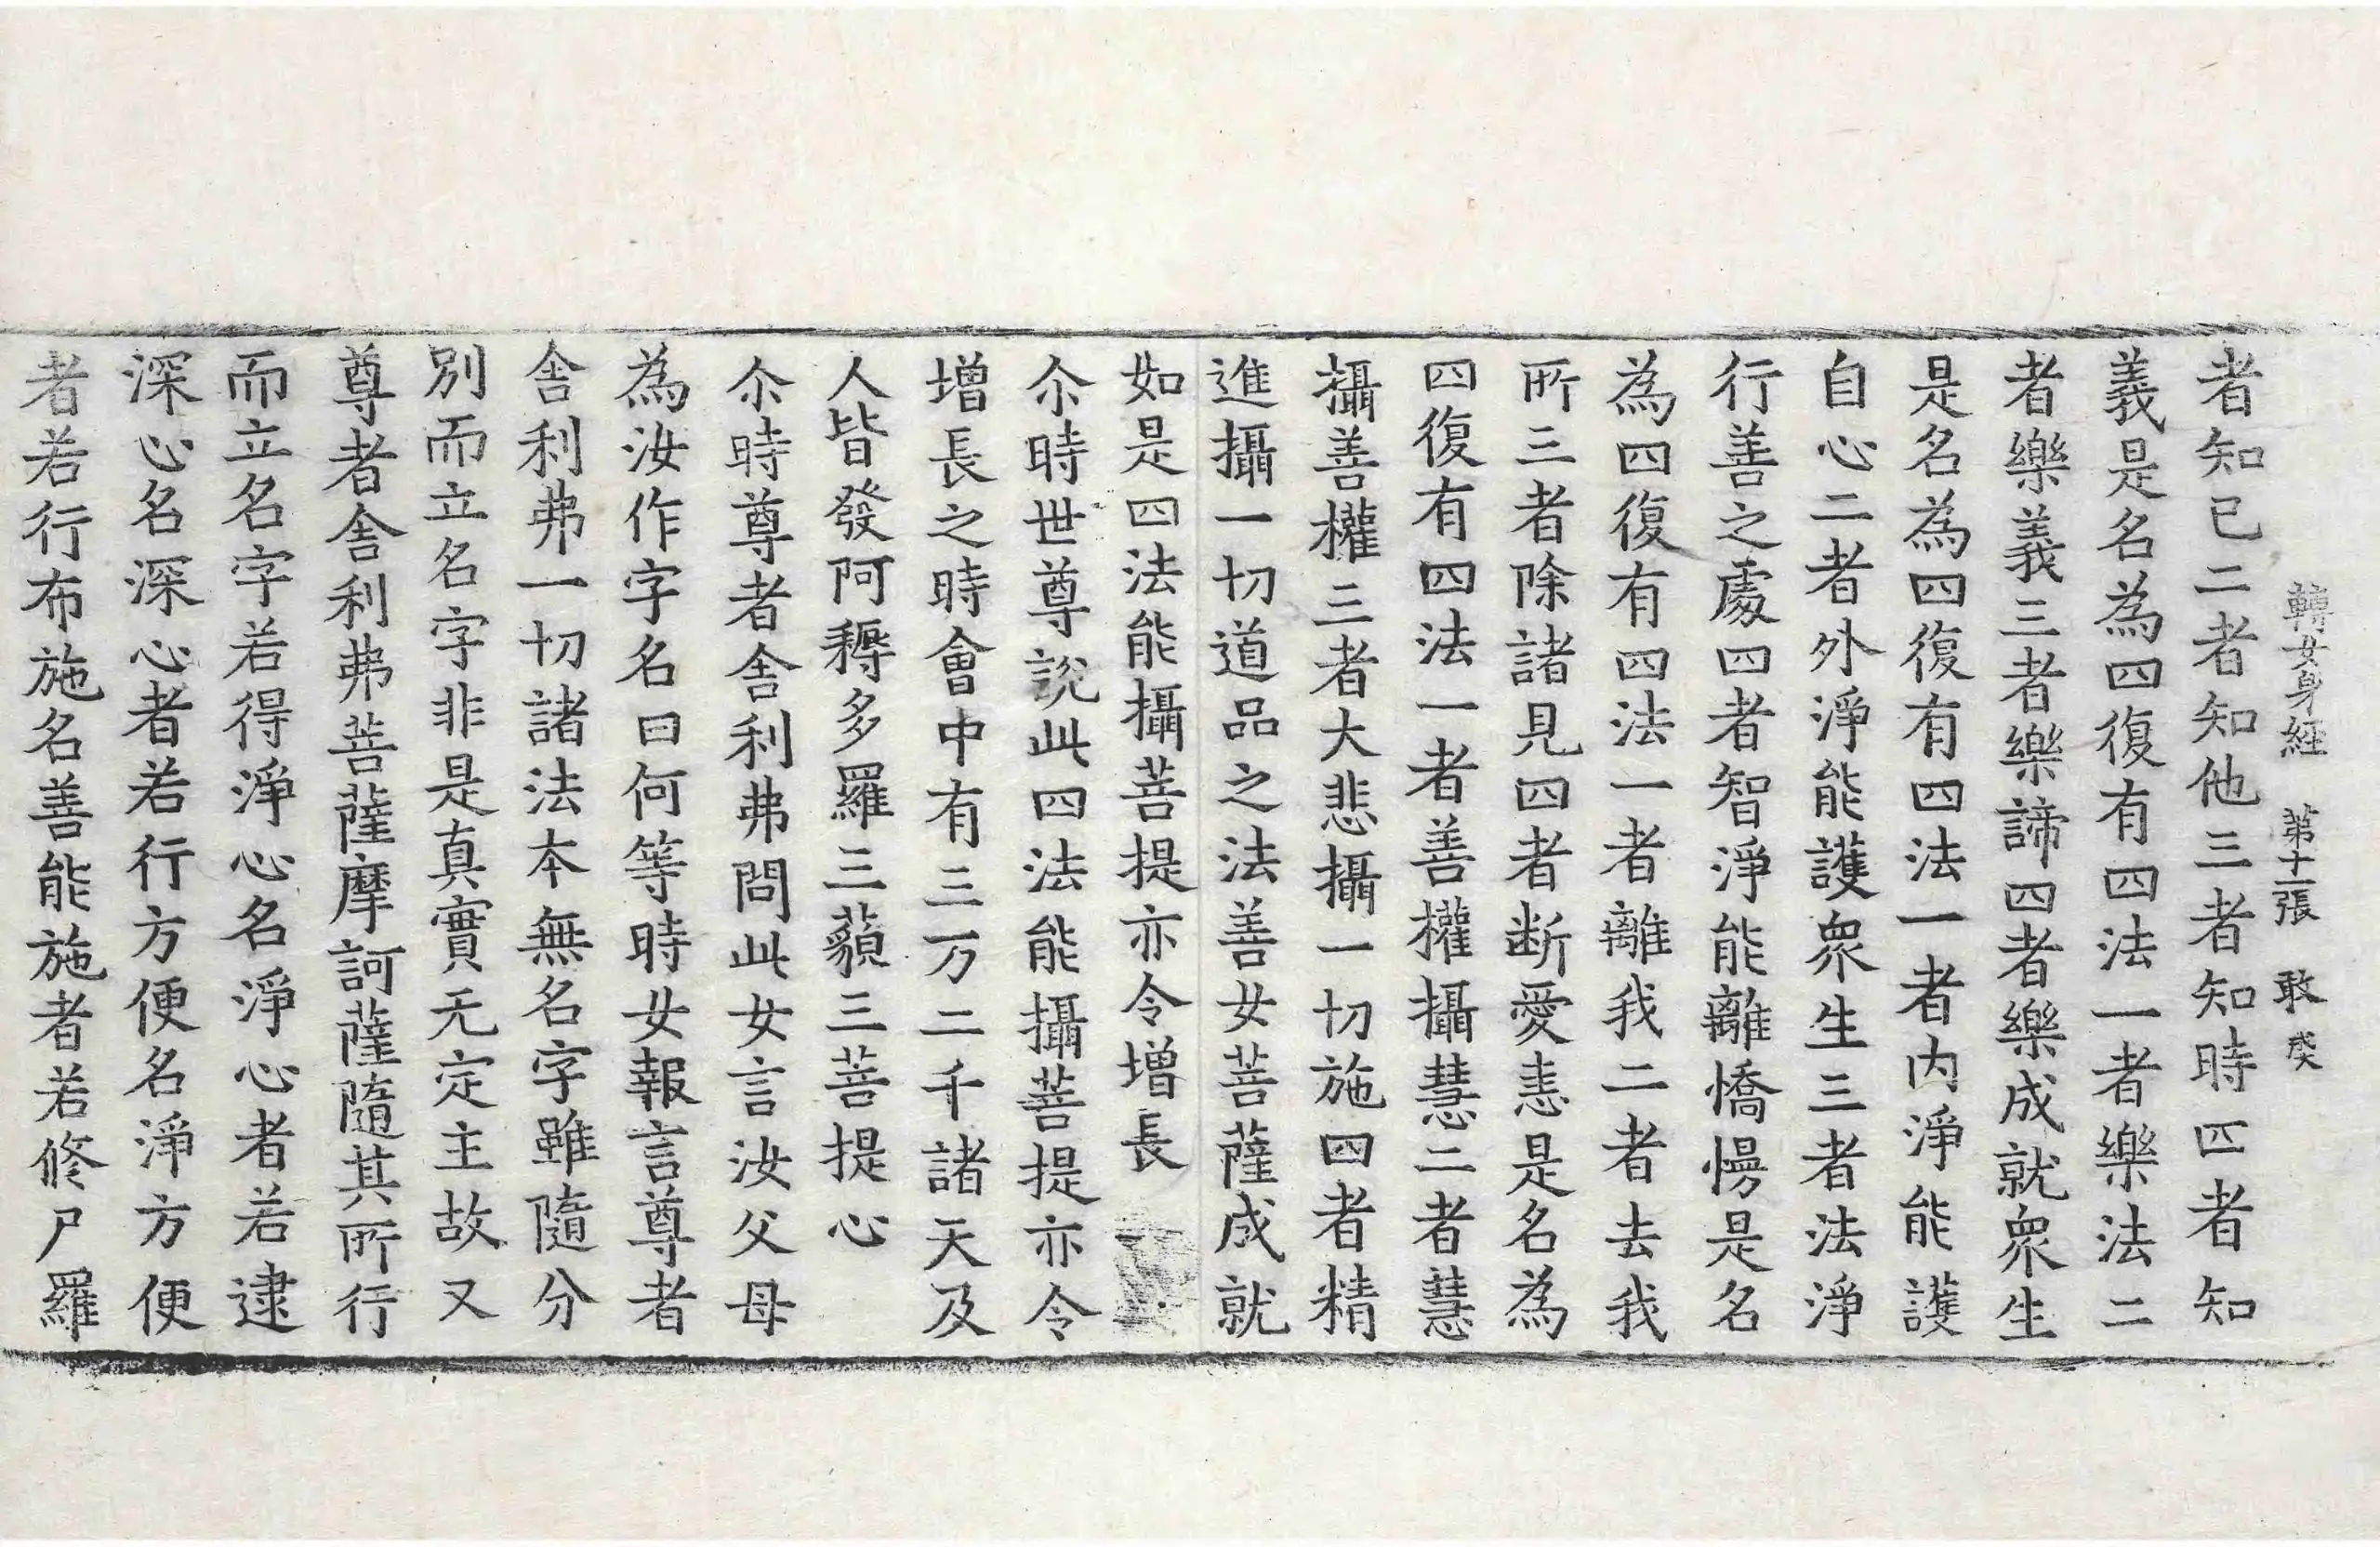 轉女身經 第十二張 敢
者知已二者知他三者知時四者知
義是名為四復有四法一者樂法二
者樂義三者樂諦四者樂成就衆生
是名為四復有四法一者内淨能護
自心二者外淨能護衆生三者法淨
行善之處四者智淨能離憍慢是名
為四復有四法一者離我二者去我
所三者除諸見四者断愛恚是名為
四復有四法一者善權攝慧二者慧
攝善權三者大悲攝一切施四者精
進攝一切道品之法善女菩薩成就
如是四法能攝菩提亦令增長
尒時世尊說此四法能攝菩提亦令
增長之時會中有三万二千諸天及
人皆發阿耨多羅三藐三菩提心
尒時尊者舎利弗問此女言汝父母
為汝作字名曰何等時女報言尊者
舎利弗一切諸法本無名字雖隨分
別而立名字非是真實无定主故又
尊者舎利弗菩薩摩訶薩隨其所行
而立名字若得淨心名淨心者若逮
深心名深心者若行方便名淨方便
者若行布施名善能施者若修尸羅